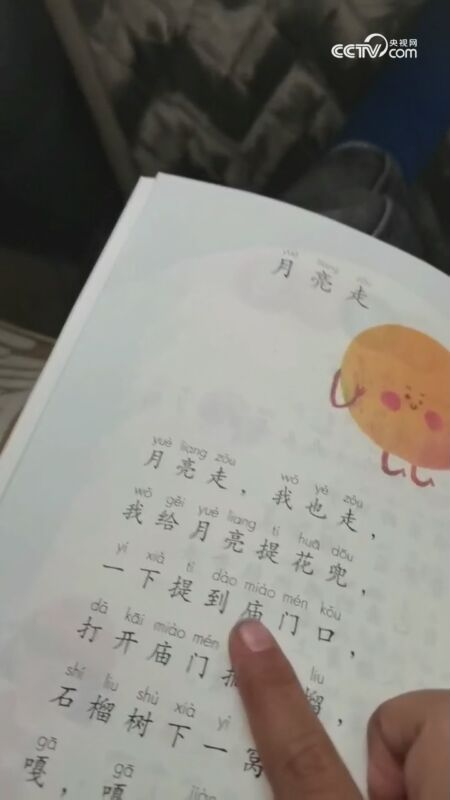 CCTV央视网.com
月亮走
yuè liang zǒu wǒ yě zǒu
月亮走，我也走，
wǒ gěi yuè liang tí huā dōu
我给月亮提花兜，
yí xià tí dào miào mén kǒu
一下提到庙门口，
dǎ kāi miào mén liu
打开庙门榴，
shí liu shù xià yì
石榴树下一窝
gā gā
嘎，嘎